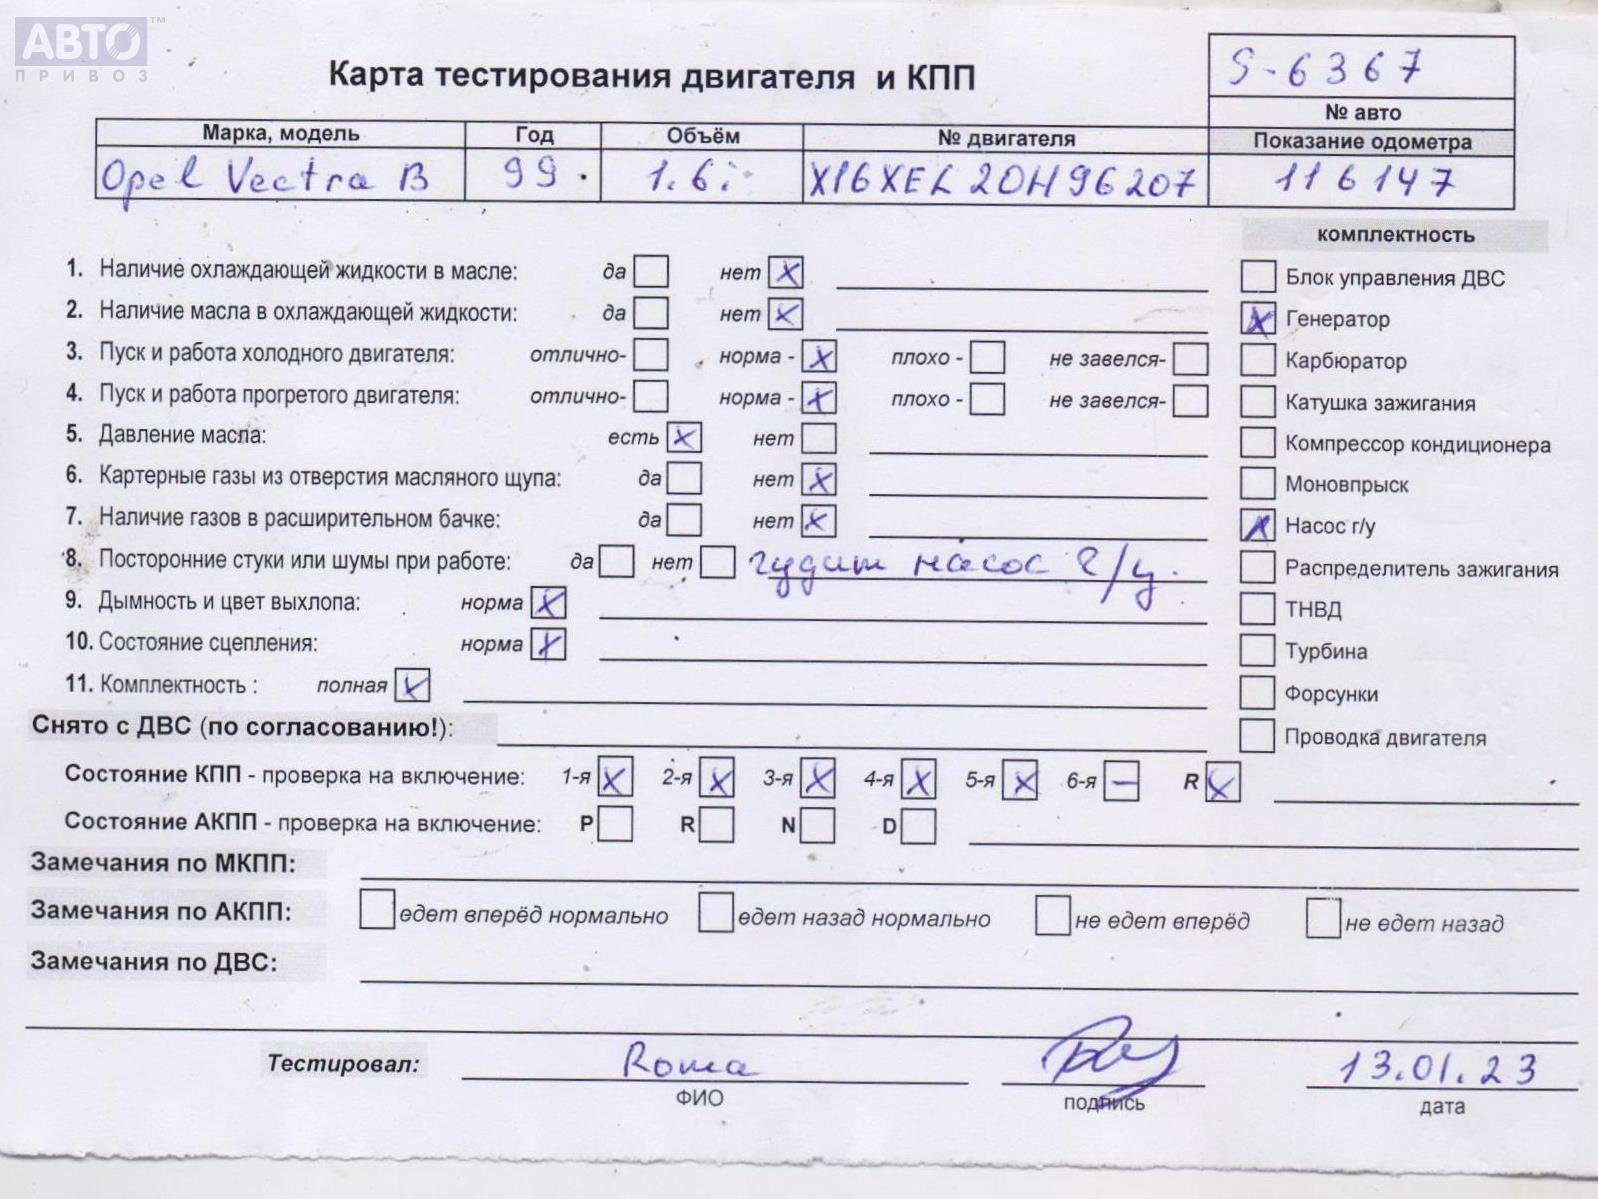 АВТО™
ПРИВОЗ
Карта тестирования двигателя и КПП
S-6367
№ авто
Марка, модель Год Объём № двигателя Показание одометра
Opel Vectra B 99. 1.6i X16XEL 20H96207 116147
комплектность
1. Наличие охлаждающей жидкости в масле: да нет X
Блок управления ДВС
2. Наличие масла в охлаждающей жидкости: да нет X
X Генератор
3. Пуск и работа холодного двигателя: отлично- норма - X плохо - не завелся-
Карбюратор
4. Пуск и работа прогретого двигателя: отлично- норма - X плохо - не завелся-
Катушка зажигания
5. Давление масла: есть X нет
Компрессор кондиционера
6. Картерные газы из отверстия масляного щупа: да нет X
Моновпрыск
7. Наличие газов в расширительном бачке: да нет X
X Насос г/у
8. Посторонние стуки или шумы при работе: да нет гудит насос г/у.
Распределитель зажигания
9. Дымность и цвет выхлопа: норма X
ТНВД
10. Состояние сцепления: норма X
Турбина
11. Комплектность : полная X
Форсунки
Снято с ДВС (по согласованию!):
Проводка двигателя
Состояние КПП - проверка на включение: 1-я X 2-я X 3-я X 4-я X 5-я X 6-я – R X
Состояние АКПП - проверка на включение: P R N D
Замечания по МКПП:
Замечания по АКПП: едет вперёд нормально едет назад нормально не едет вперёд не едет назад
Замечания по ДВС:
Тестировал: Roma 13.01.23
ФИО подпись дата